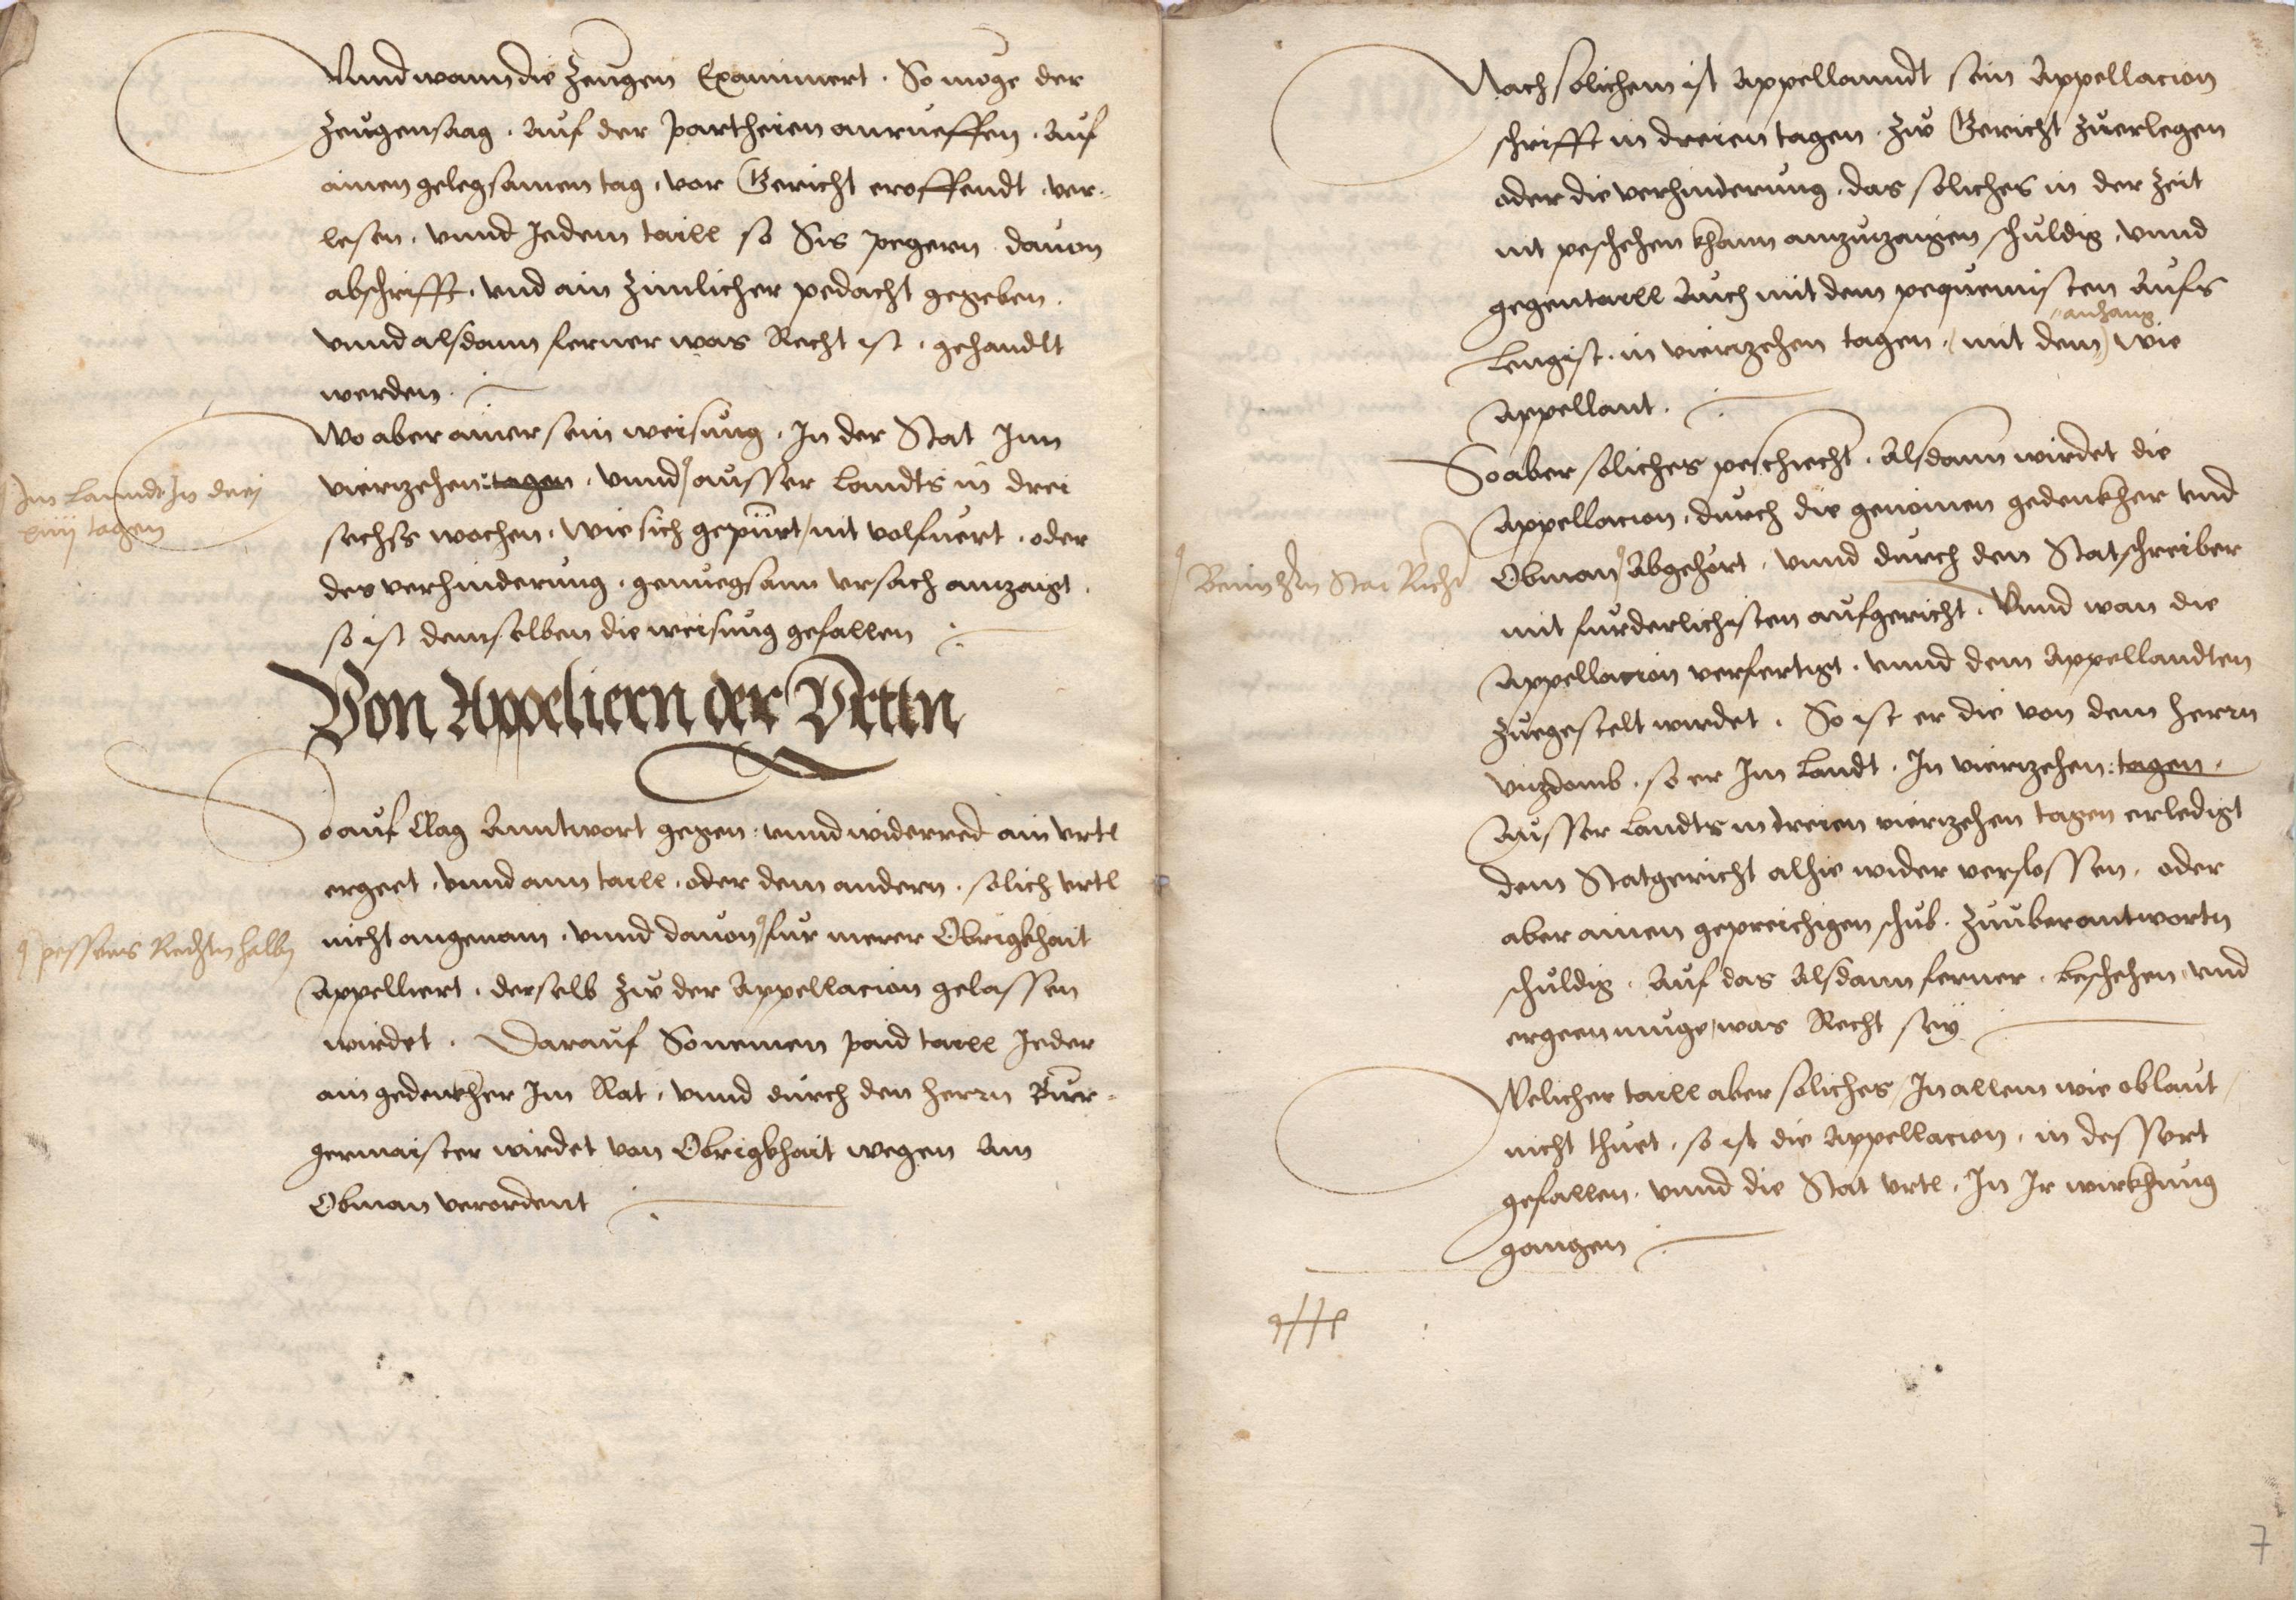 Vnnd wann die Zeugen Examiniert. So möge der
Zeugensaag. Auf der partheien anrueffen. Auf
ainen gelegsamen tag, vor Gericht eroffendt, ver-
lesen, vnnd Jedem taill so Sis pegern dauon
abschrifft, vnd ain Zimlicher pedacht gegeben.
vnnd alsdann ferner was Recht ist, gehandlt
werden.
Wo aber ainer sein weisung, In der Stat Inn
vierzehen: tagen, vnnd ausser Landts in drei
Im Lannde In drej
xiiij tagen
sechss wochen, wie sich gepürt, nit volfuert, oder
des verhinderung, genuegsam vrsach anzaigt,
so ist demselben die weisung gefallen
Von Appeliern der Vrttn
So auf Clag Anntwort gegen: vnnd widerred ain vrtl
ergeet, vnnd ann taill, oder dem andern, solich vrtl
nicht angenam, vnnd dauon fur merer Obrigkhait
pessers Rechtn halbn
Appelliert, derselb zw der Appellacion gelassen
wirdet. Darauf So nemen paid taill Jeder
ain gedenkher Im Rat, vnnd durch den herrn Bur-
germaister wirdet von Obrigkhait wegen Ain
Obman verordent
Nach solichem ist Appellanndt sein Appellacion
schrifft in dreien tagen. zw Gericht zuerlegen
oder die verhinderung, das soliches in der Zeit
nit peschehen khann anzuzaigen schuldig, vnnd
gegentaill Auch mit dem pequemisten Aufs
anhang
lengist, in vierzehen tagen, mit dem wie
Appellant.
So aber soliches peschiecht, Alsdann wirdet die
Appellacion, durch die genomen gedenkher vnd
Obman Abgehört, vnnd durch den Statschreiber
Stat Richt
mit furderlichisten aufgericht. Vnnd wan die
Appellacion verfertigt, vnnd dem Appellandten
zuegestelt wirdet. So ist er die von dem herrn
vizdomb, so er Im Landt, In vierzehen: tagen.
Ausser Landts in dreien vierzehen tagen erledigt
dem Statgericht alhie wider verslossen, oder
aber ainen gepreichigen schub. zuuberantwortn
schuldig, Auf das Alsdann ferner, beschehen vnd
ergeen muge, was Recht sey
Welicher taill aber soliches, In allem wie oblaut,
nicht thuet, so ist die Appellacion, in dessert
gefallen, vnnd die Stat vrtl, In Ir wirkhung
gangen
7